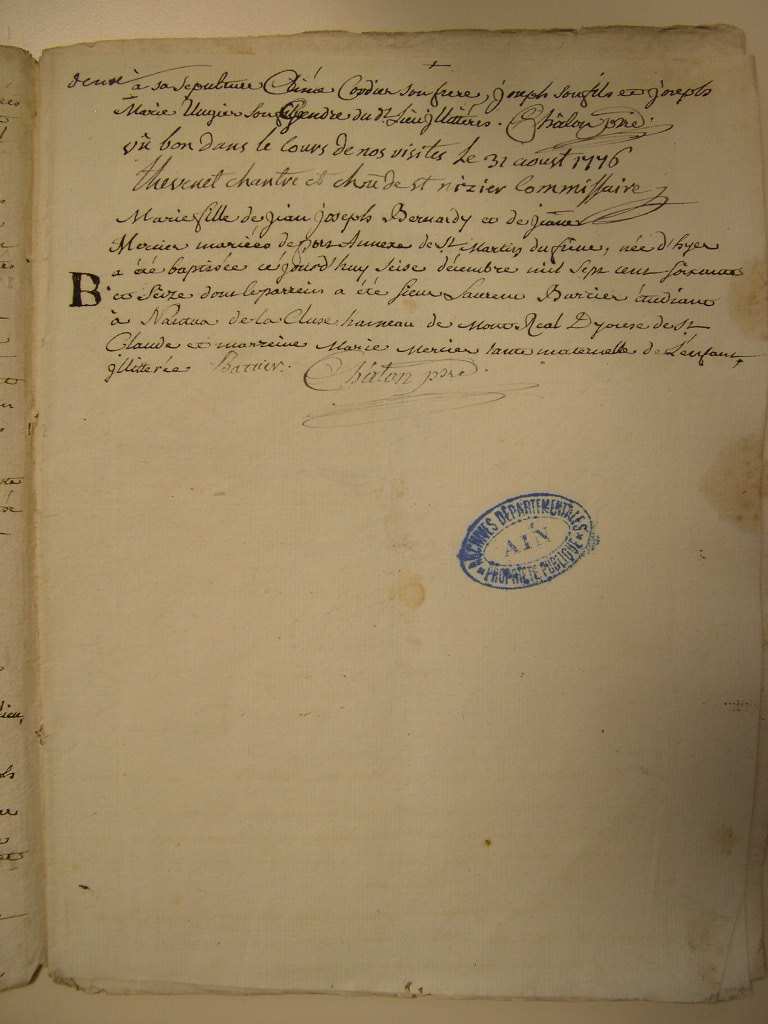 à sa sepulture Aimé Cordier son frere, joseph son fils et joseph
Marie son gendre du dt. Lieu jllittérés. Châlon ptre.
vû bon dans le cours de nos visites le 31 aoust 1776
thevenet chantre et de st nizier Commissaire
Marie fille de jean joseph Bernardy et de jeanne
Mercier mariées de Annexe de St Martin du frêne, née d'hyer
a été baptisée cejourd'huy seise décembre mil sept cent soixante
B et Seize dont le parrein a été sieur Laurent Barrier étudiant
à Nantua de la Cluse hameau de Mont Real Dyocese de St
Claude et marreine Marie Mercier tante maternelle de L'enfant,
jllitterée Barrier. Châlon ptre.
ARCHIVES DÉPARTEMENTALES
AIN
★ PROPRIÉTÉ PUBLIQUE ★